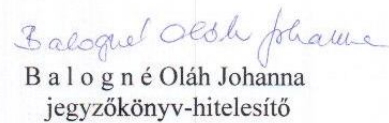 Balogné Oláh Johanna
B a l o g n é Oláh Johanna
jegyzőkönyv-hitelesítő